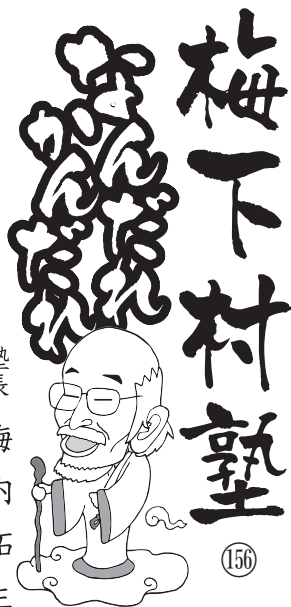 梅下村塾
㊿
なんだれ
かんだれ
塾長 梅内拓生